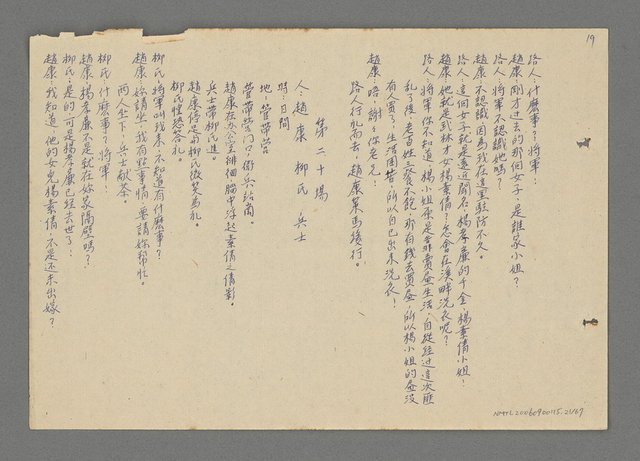 19
路人：什麼事？將軍！
趙康：剛才過去的那個女子，是誰家小姐？
路人：將軍不認識她嗎？
趙康：不認識，因為我在這裏駐防不久。
路人：這個女子就是遠近聞名楊孝廉的千金，楊素倩小姐！
趙康：她就是武林才女楊素倩？怎會在溪畔洗衣呢？
路人：將軍你不知道，楊小姐原是靠賣畫生活，自從經過這次匪
亂了後，老百姓三餐不飽，那有錢去買畫，所以楊小姐的畫沒
有人買了，生活困苦，所以自己出來洗衣！
趙康：唔，謝謝你老兄！
路人行禮而去，趙康策馬緩行。
第二十場
人：趙康 柳氏 兵士
時：日間
地：管帶營
管帶營門口衛兵站崗。
趙康在辦公室徘徊，腦中浮起素倩之倩影。
兵士帶柳氏進。
趙康停足，向柳氏微笑為禮。
柳氏惶恐答禮。
柳氏：將軍叫我來，不知道有什麼事？
趙康：妳請坐，我有點事情，要請妳幫忙。
兩人坐下，兵士獻茶。
柳氏：什麼事？將軍！
趙康：楊孝廉不是就在妳家隔壁嗎？
柳氏：是的，可是楊孝廉已經去世了！
趙康：我知道，他的女兒楊素倩，不是還未出嫁？
NMTL20060900115.21/67